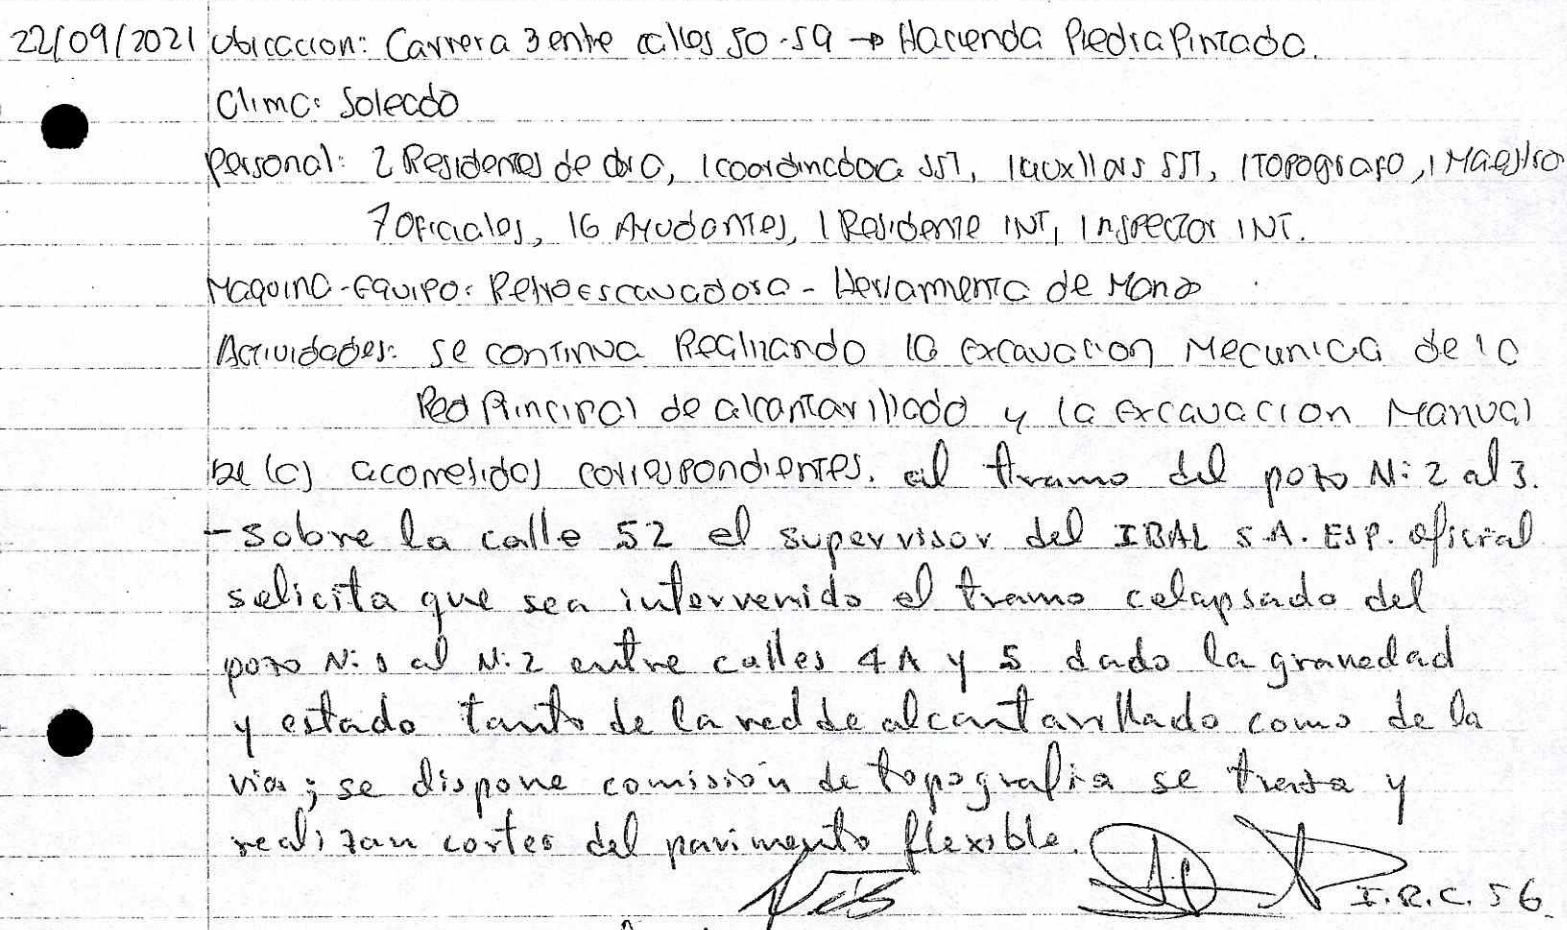 22/09/2021 Ubicacion: Carrera 3 entre calles 50-59 → Hacienda Piedra Pintada.
Clima: Soleado
Personal: 2 Residentes de obra, 1 coordinadora SST, 1 auxiliar SST, 1 Topografo, 1 Maestro
7 Oficiales, 16 Ayudantes, 1 Residente INT, 1 nspector INT.
Maquina-Equipo: Retroescavadora - Herramienta de Mano
Actividades: se continua Realizando la excavacion Mecanica de la
Red Principal de alcantarillado y la excavacion Manual
de las acometidas correspondientes. al tramo del pozo N:2 al 3.
- Sobre la calle 52 el supervisor del IBAL S.A. ESP. oficial
solicita que sea intervenido el tramo colapsado del
pozo N:1 al N:2 entre calles 4A y 5 dado la gravedad
y estado tanto de la red de alcantarillado como de la
via; se dispone comisión de topografia se traza y
realizan cortes del pavimento flexible.
I.R.C. 56.